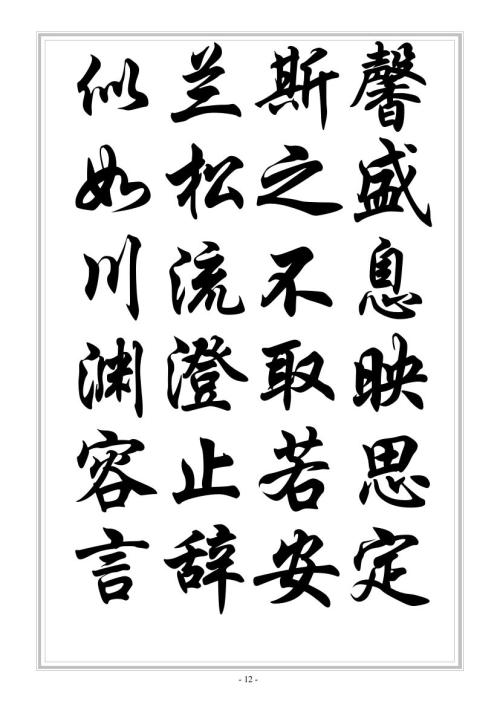 似兰斯馨
如松之盛
川流不息
渊澄取映
容止若思
言辞安定
- 12 -